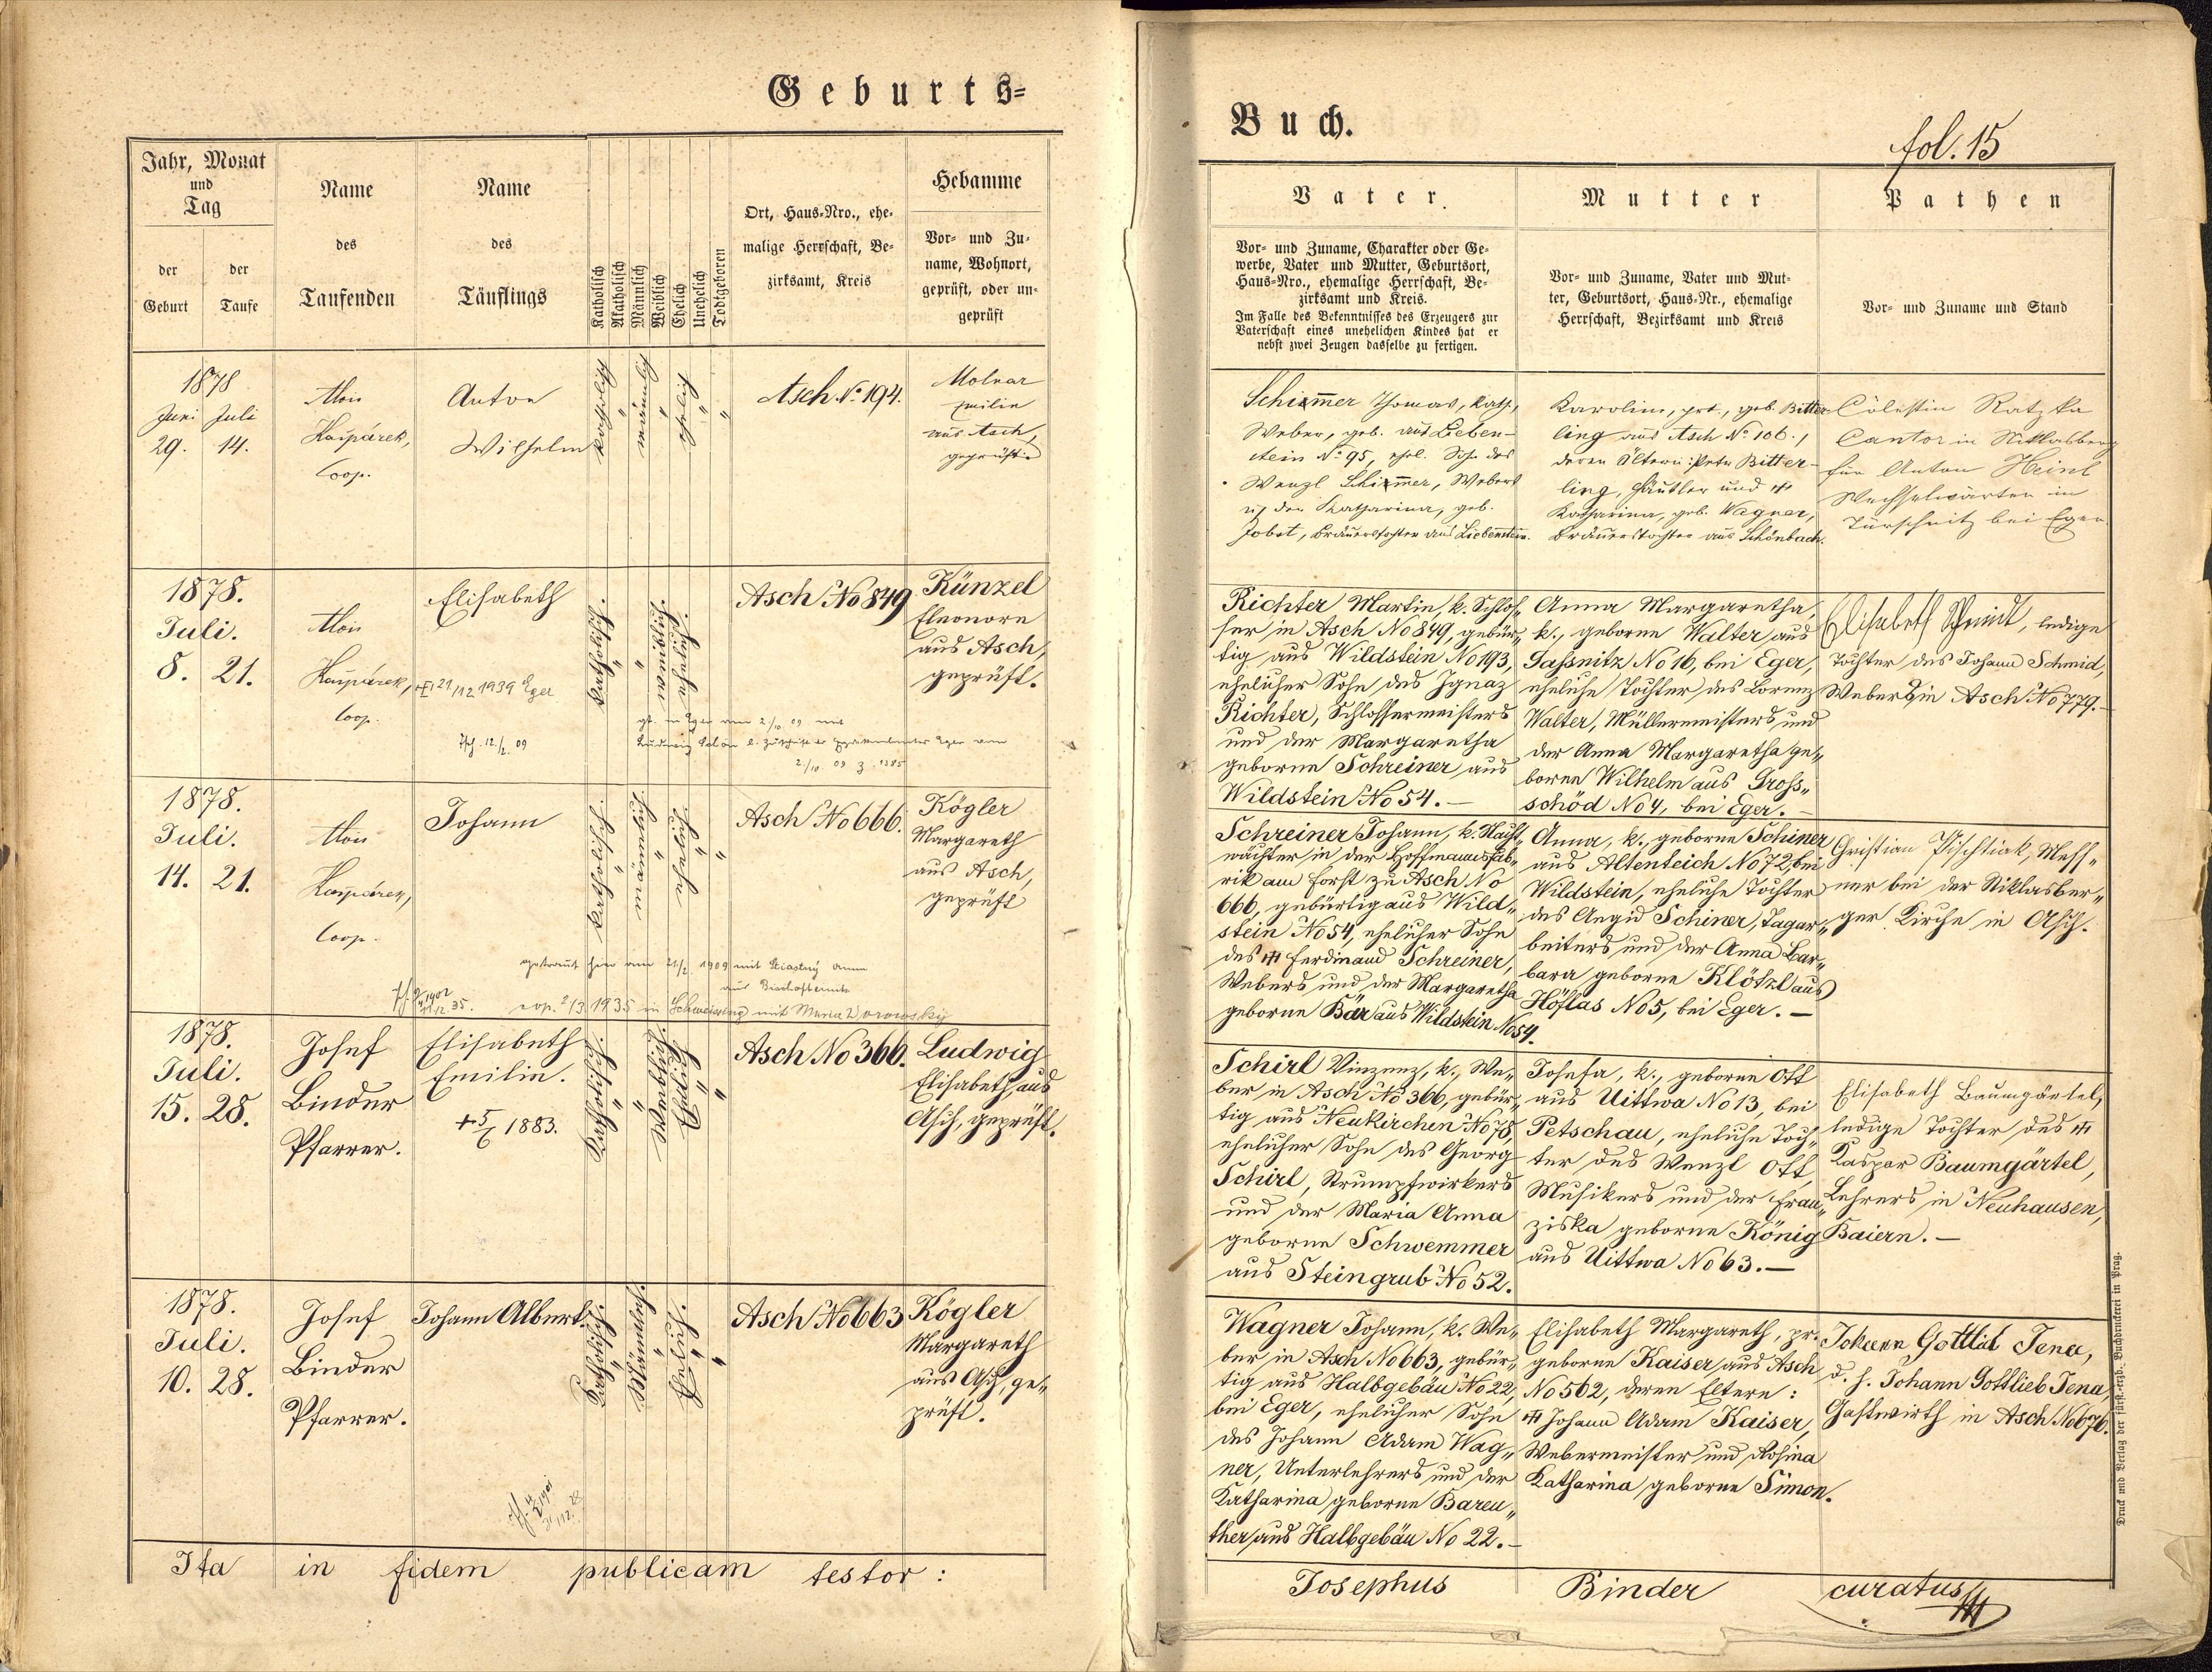 Geburts-
Jahr, Monat
und
Tag
der
Geburt
der
Taufe
Name
des
Taufenden
Name
des
Täuflings
Katholisch
Akatholisch
Männlich
Weiblich
Ehelich
Unehelich
Todtgeboren
Ort, Haus-Nro., ehe-
malige Herrschaft, Be-
zirksamt, Kreis
Hebamme
Vor- und Zu-
name, Wohnort,
geprüft, oder un-
geprüft
1878
Juni Juli
29. 14.
Alois
Kašpárek,
Coop.
Anton
Wilhelm
katholisch
"
männlich
"
ehelich
"
"
Asch No 194.
Molnar
aus Asch,
geprüft.
1878.
Juli.
8. 21.
Alois
Kašpárek,
Coop.
Elisabeth
21/12 1939 Eger
12/2. 09
katholisch.
"
"
Asch No 849
Künzel
Eleonore
aus Asch,
geprüft.
in Eger am 2/10 09 mit
Ludwig
2/10 09
1878.
Juli.
14. 21.
Alois
Kašpárek,
Coop.
Johann
katholisch.
"
männlich.
"
ehelich.
"
"
Asch No 666.
Kögler
Margareth
aus Asch,
geprüft
getraut hier am 21/2 1909 mit Stiastný Anna
aus Bischofteinitz
cop. 2/3 1935 in Schweissing mit Maria
1878.
Juli.
15. 28.
Josef
Binder
Pfarrer.
Elisabeth
Emilie.
+ 5/6 1883.
Katholisch.
"
"
Weiblich.
Ehelich.
"
"
Asch No 366.
Ludwig
Elisabeth, aus
Asch, geprüft.
1878.
Juli.
10. 28.
Josef
Binder
Pfarrer.
Johann Albert.
Katholisch.
"
Männlich.
"
Ehelich.
"
"
Asch No 663
Kögler
Margareth
aus Asch, ge-
prüft.
Ita in fidem publicam testor :
Buch.
fol. 15
Vater.
Vor- und Zuname, Charakter oder Ge-
werbe, Vater und Mutter, Geburtsort,
Haus-Nro., ehemalige Herrschaft, Be-
zirksamt und Kreis.
Im Falle des Bekenntnisses des Erzeugers zur
Vaterschaft eines unehelichen Kindes hat er
nebst zwei Zeugen dasselbe zu fertigen.
Mutter
Vor- und Zuname, Vater und Mut-
ter, Geburtsort, Haus-Nr., ehemalige
Herrschaft, Bezirksamt und Kreis
Pathen
Vor- und Zuname und Stand
Thomas, kath.,
Weber, geb. aus Lieben-
stein No 95, ehel. Sohn des
Wenzl Webers
u. der Katharina, geb.
Jobst, Bräuerstochter aus Liebenstein.
Karolina, prt., geb. Bitter-
ling aus Asch No 106.,
deren Ältern: Peter Bitter-
ling, und
Katharina, geb. Wagner,
Bräuerstochter aus Schönbach.
Cölestin Ratzka
Cantor in Niklasberg
für Anton Heinl
Wechselwärter in
Türschnitz bei Eger
Richter Martin, k. Schlos-
ser in Asch No 849, gebür-
tig aus Wildstein No 193,
ehelicher Sohn des Ignaz
Richter, Schlossermeisters
und der Margaretha
geborne Schreiner aus
Wildstein No 54. —
Anna Margaretha,
k., geborne Walter aus
Gassnitz No 16, bei Eger,
eheliche Tochter des Lorenz
Walter, Müllermeisters und
der Anna Margaretha ge-
borne Wilhelm aus Gross-
schöd No 4, bei Eger. —
Elisabeth Schmidt, ledige
Tochter des Johann Schmid,
Webers in Asch No 779. —
Schreiner Johann, k. Nacht-
wächter in der Hoffmannsfab-
rik am Forst zu Asch No
666, gebürtig aus Wild-
stein No 54, ehelicher Sohn
des Ferdinand Schreiner,
Webers und der Margaretha
geborne Bär aus Wildstein No 54.
Anna, k., geborne Schiner
aus Altenteich No 72, bei
Wildstein, eheliche Tochter
des Aegid Schiner, Tagar-
beiters und der Anna Bar-
bara geborne Klötzl aus
Höflas No 5, bei Eger. —
Christian Pischtiak, Mess-
ner bei der Niklasber-
ger Kirche in Asch.
Schirl Vinzenz, k., We-
ber in Asch No 366, gebür-
tig aus Neukirchen No 78,
ehelicher Sohn des Georg
Schirl, Strumpfwirkers
und der Maria Anna
geborne Schwemmer
aus Steingrub No 52.
Josefa, k., geborne Ott
aus Uittwa No 13, bei
Petschau, eheliche Toch-
ter des Wenzl Ott,
Musikers und der Fran-
ziska geborne König
aus Uittwa No 63. —
Elisabeth Baumgärtel,
ledige Tochter des
Kaspar Baumgärtel,
Lehrers in Neuhausen,
Baiern. —
Wagner Johann, k. We-
ber in Asch No 663, gebür-
tig aus Halbgebäu No 22,
bei Eger, ehelicher Sohn
des Johann Adam Wag-
ner, Unterlehrers und der
Katharina geborne Bareu-
ther aus Halbgebäu No 22. —
Elisabeth Margareth, pr.
geborne Kaiser aus Asch
No 562, deren Eltern:
Johann Adam Kaiser,
Webermeister und Rosina
Katharina geborne Simon.
Johann Gottlieb Jena,
d. h. Johann Gottlieb Jena,
Gastwirth in Asch No 676.
Josephus Binder curatus
Druck und Verlag der fürst.-erzb. Buchdruckerei in Prag.